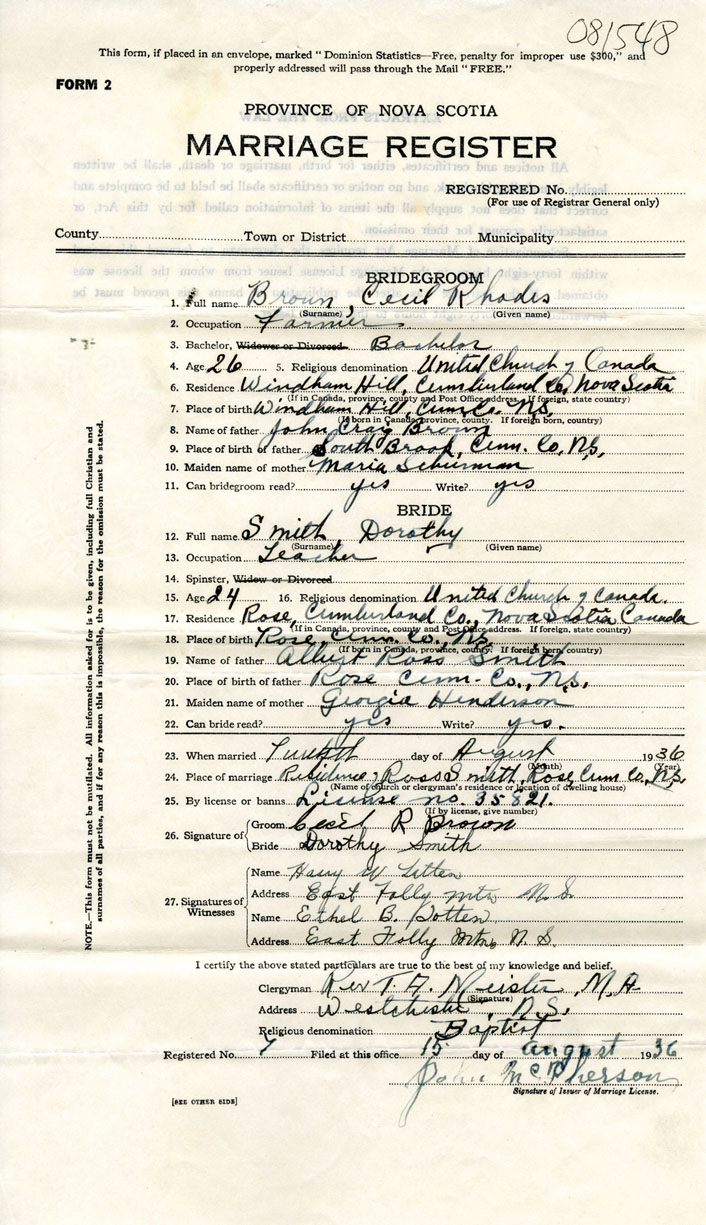 081548
This form, if placed in an envelope, marked "Dominion Statistics—Free, penalty for improper use $300," and
properly addressed will pass through the Mail "FREE."
FORM 2
PROVINCE OF NOVA SCOTIA
MARRIAGE REGISTER
REGISTERED No.
(For use of Registrar General only)
County Town or District Municipality
BRIDEGROOM
1. Full name Brown, Cecil Rhodes
(Surname) (Given name)
2. Occupation Farmer
3. Bachelor, Widower or Divorced Bachelor
4. Age 26 5. Religious denomination United Church of Canada
6. Residence Windham Hill, Cumberland Co, Nova Scotia
(If in Canada, province, county and Post Office address. If foreign, state country)
7. Place of birth Windham Hill, Cum. Co. N.S.
(If born in Canada, province, county. If foreign born, country)
8. Name of father John Craig Brown
9. Place of birth of father South Brook, Cum. Co, N.S.
10. Maiden name of mother Maria Schurman
11. Can bridegroom read? yes Write? yes
BRIDE
12. Full name Smith, Dorothy
(Surname) (Given name)
13. Occupation Teacher
14. Spinster, Widow or Divorced
15. Age 24 16. Religious denomination United Church of Canada.
17. Residence Rose, Cumberland Co., Nova Scotia Canada
(If in Canada, province, county and Post Office address. If foreign, state country)
18. Place of birth Rose, Cum. Co., N.S.
(If born in Canada, province, county. If foreign born, country)
19. Name of father Albert Ross Smith
20. Place of birth of father Rose Cum. Co., N.S.
21. Maiden name of mother Georgia Henderson
22. Can bride read? yes Write? yes.
23. When married Twelfth day of August 1936
(Month) (Year)
24. Place of marriage Residence, Ross Smith, Rose, Cum Co, N.S.
(Name of church or clergyman's residence or location of dwelling house)
25. By license or banns License no. 35821.
(If by license, give number)
26. Signature of
Groom Cecil R Brown
Bride Dorothy Smith
27. Signatures of Witnesses
Name Harry W
Address East Folly Mtn N.S.
Name Ethel B.
Address East Folly Mtn, N.S.
I certify the above stated particulars are true to the best of my knowledge and belief.
Clergyman Rev T. A. Meister, M.A.
(Signature)
Address Westchester, N.S.
Religious denomination Baptist
Registered No. 7 Filed at this office 15 day of August 1936
John McPherson
Signature of Issuer of Marriage License.
[SEE OTHER SIDE]
NOTE.—This form must not be mutilated. All information asked for is to be given, including full Christian and
surnames of all parties, and if for any reason this is impossible, the reason for the omission must be stated.